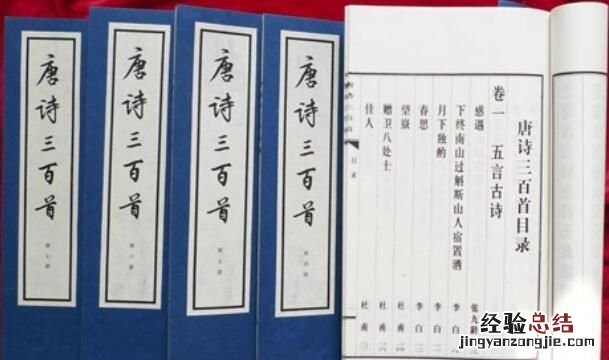 唐诗三百首
第七册
唐诗三百首
第六册
唐诗三百首
第五册
唐诗三百首
第四册
唐诗三百首目录
卷一 五言古诗
感遇 张九龄
下终南山过斛斯山人宿置酒 李白
月下独酌 李白 二
春思 李白 三
望嶽 杜甫
赠卫八处士 杜甫
佳人 杜甫
唐诗三百首 目录
经验总结
jingyanzongjie.com